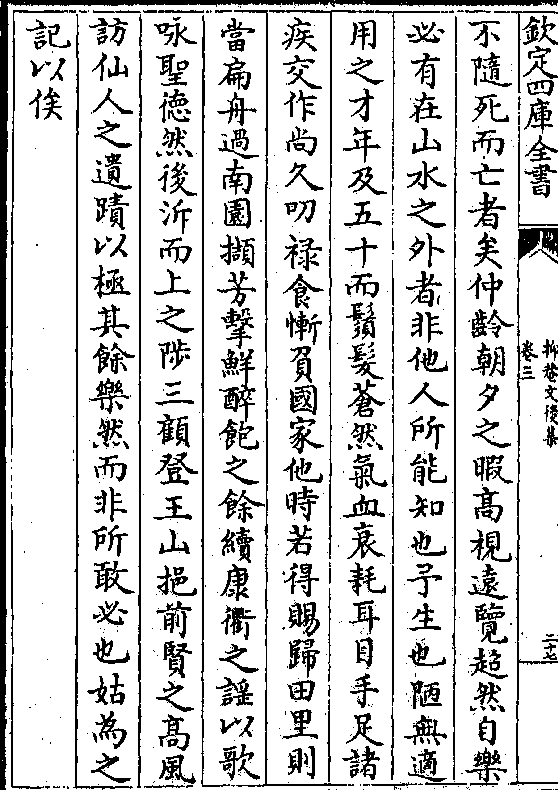 欽定四庫全書
抑菴文後集
卷三
二十七
不隨死而亡者矣仲齡朝夕之暇高視遠覽超然自樂
必有在山水之外者非他人所能知也予生也陋無適
用之才年及五十而鬚髮蒼然氣血衰耗耳目手足諸
疾交作尚久叨禄食慚負國家他時若得賜歸田里則
當扁舟過南園擷芳擊鮮醉飽之餘續康衢之謡以歌
咏聖徳然後泝而上之陟三顧登王山挹前賢之高風
訪仙人之遺蹟以極其餘樂然而非所敢必也姑為之
記以俟